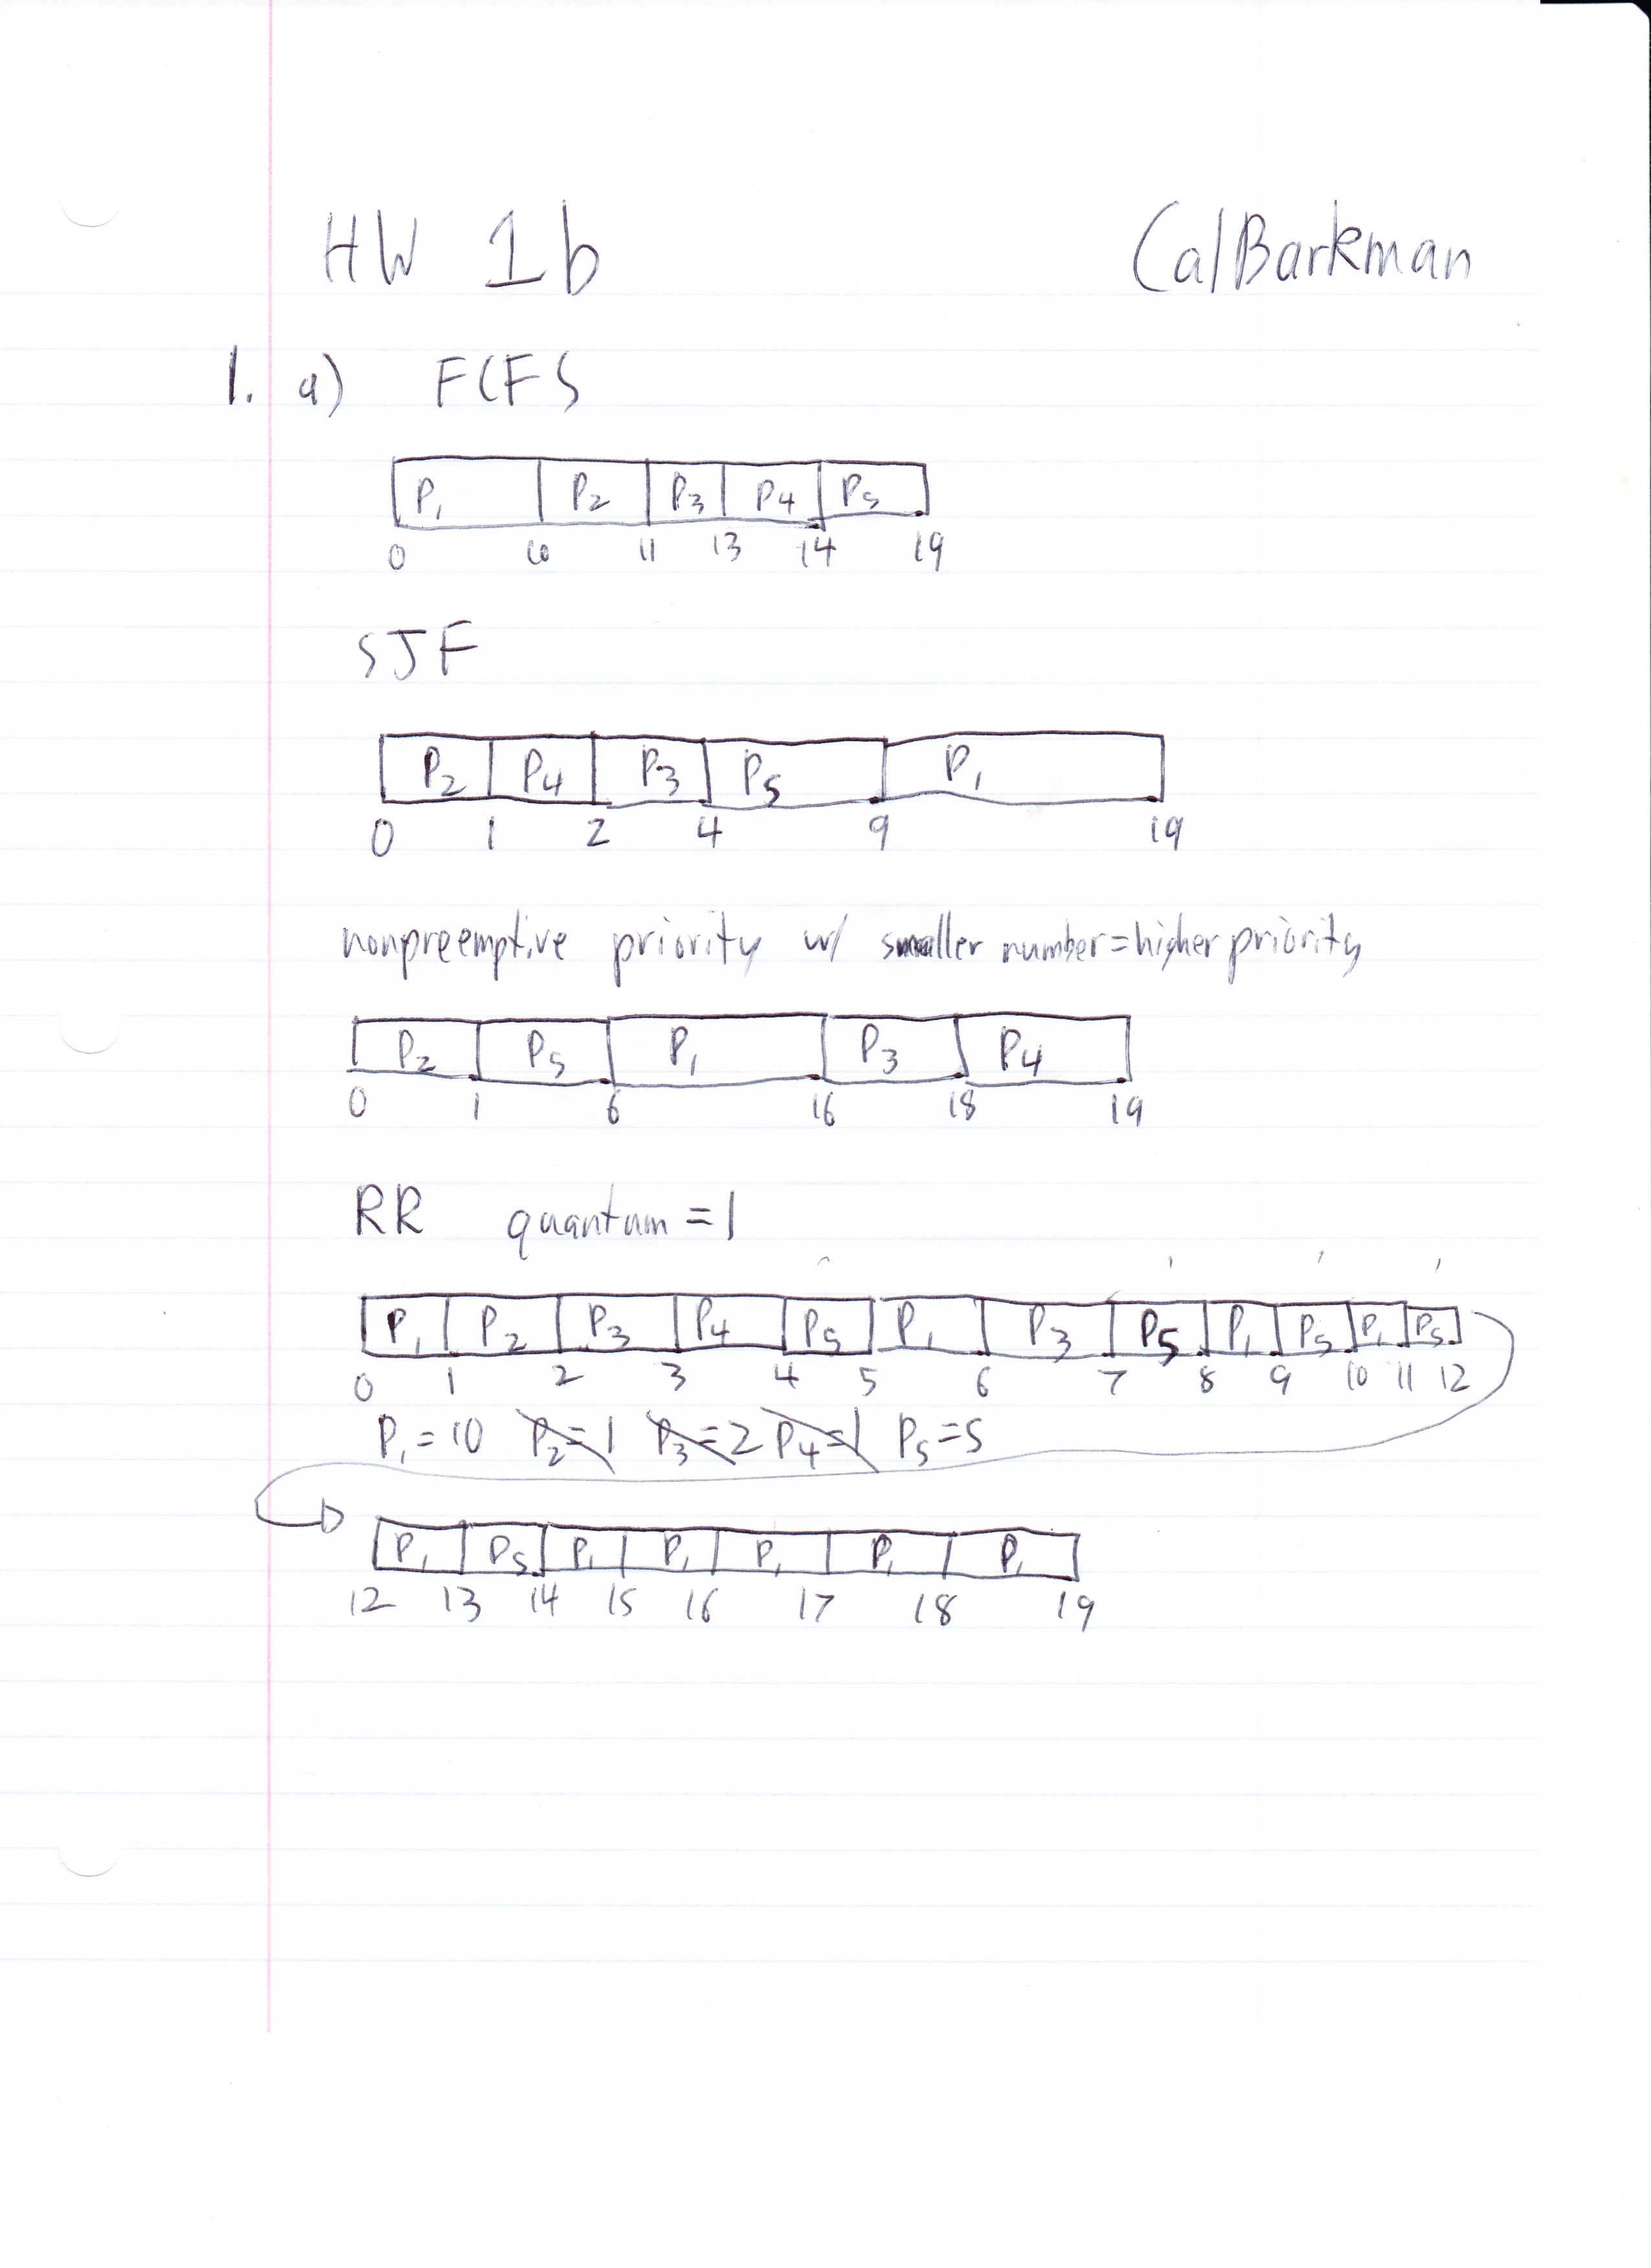 HW 1b Cal Barkman
1. a) FCFS
P1 P2 P3 P4 P5
0 10 11 13 14 19
SJF
P2 P4 P3 P5 P1
0 1 2 4 9 19
nonpreemptive priority w/ smaller number=higher priority
P2 P5 P1 P3 P4
0 1 6 16 18 19
RR quantum=1
P1 P2 P3 P4 P5 P1 P3 P5 P1 P5 P1 P5
0 1 2 3 4 5 6 7 8 9 10 11 12
P1=10 P2=1 P3=2 P4=1 P5=5
P1 P5 P1 P1 P1 P1 P1
12 13 14 15 16 17 18 19